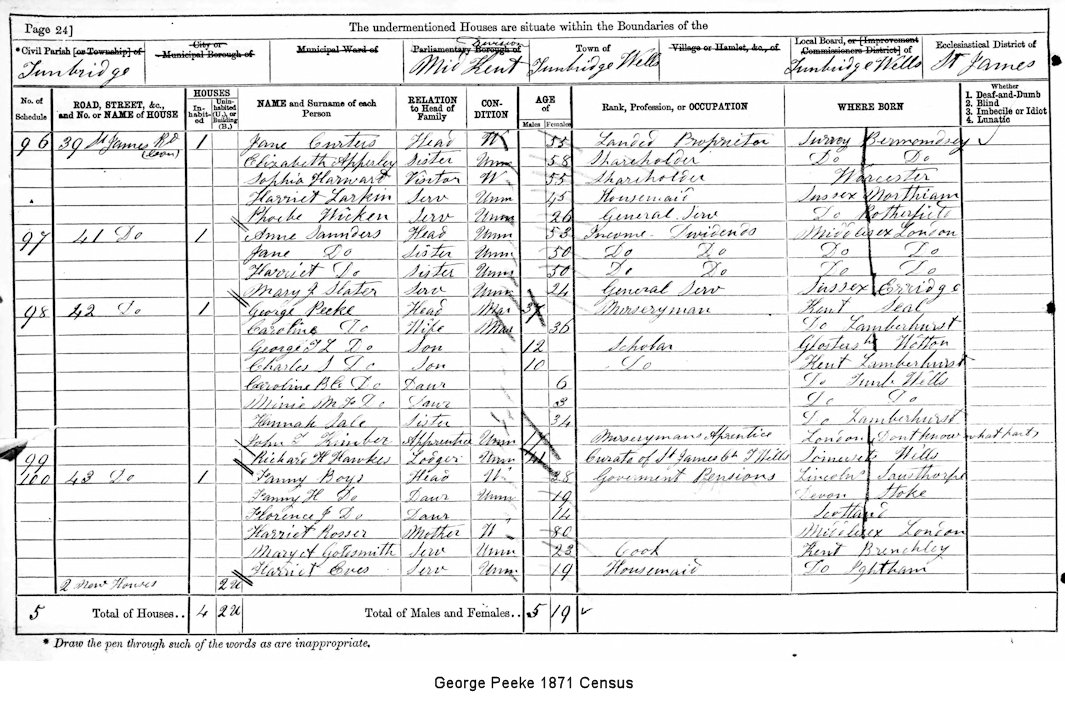 Page 24] The undermentioned Houses are situate within the Boundaries of the
*Civil Parish [or Township] of City or Municipal Borough of Municipal Ward of Parliamentary Borough of Division Town of Village or Hamlet, &c., of Local Board, or [Improvement Commissioners District] of Ecclesiastical District of
Tunbridge Mid Kent Tunbridge Wells Tunbridge Wells St James
No. of Schedule ROAD, STREET, &c., and No. or NAME of HOUSE HOUSES In-habit-ed Unin-habited (U.), or Building (B.) NAME and Surname of each Person RELATION to Head of Family CON-DITION AGE of Males Females Rank, Profession, or OCCUPATION WHERE BORN Whether 1. Deaf-and-Dumb 2. Blind 3. Imbecile or Idiot 4. Lunatic
96 39 St James Rd 1 Jane Curters Head W 55 Landed Proprietor Surrey Bermondsey
Elizabeth Apperley Sister Unm 58 Shareholder Do Do
Sophia Harward Visitor W 55 Shareholder Worcester
Harriet Larkin Serv Unm 45 Housemaid Sussex Northiam
Phoebe Wicken Serv Unm 26 General Serv Do Rotherfield
97 41 Do 1 Anne Saunders Head Unm 53 Income Dividends Middlesex London
Jane Do Sister Unm 50 Do Do Do Do
Harriet Do Sister Unm 50 Do Do Do Do
Mary J Slater Serv Unm 24 General Serv Sussex Erridge
98 42 Do 1 George Peeke Head Mar Nurseryman Kent Seal
Caroline Do Wife Mar 36 Do Lamberhurst
George Do Son 12 Scholar Glosters Wotton
Charles S Do Son 10 Do Kent Lamberhurst
Caroline Do Daur 6 Do Tunb Wells
Minie M F Do Daur 3 Do Do
Hannah Sale Sister 34 Do Lamberhurst
John T Kimber Apprentice Unm Nurserymans Aprentice London Dont know what part
99 Richard W Hawkes Lodger Unm Curate of St James Ch T Wells Somerset Wells
100 43 Do 1 Fanny Boys Head W 38 Goverment Pensions Lincoln Sausthorpe
Fanny H Do Daur Unm 19 Devon Stoke
Florence J Do Daur 14 Scotland
Harriet Rosser Mother W 80 Middlesex London
Mary A Goldsmith Serv Unm 23 Cook Kent Brenchley
Harriet Eves Serv Unm 19 Housemaid Do Ightham
2 New Houses 2 U
5 Total of Houses.. 4 2 U Total of Males and Females.. 5 19
* Draw the pen through such of the words as are inappropriate.
George Peeke 1871 Census